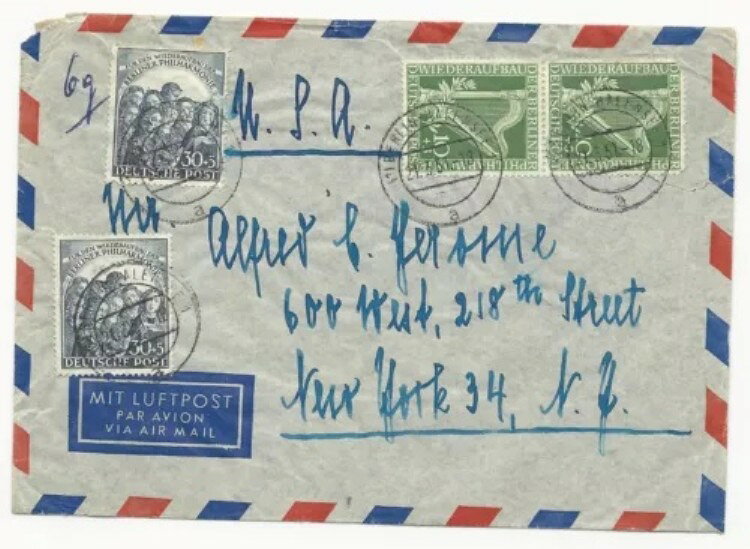 6g
FÜR DEN WIEDERAUFBAU DER
BERLINER PHILHARMONIE
30+5
DEUTSCHE POST
U. S. A.
WIEDERAUFBAU
DER BERLINER
PHILHARMONIE
DEUTSCHE POST
10+5
WIEDERAUFBAU
DER BERLINER
a
a
a
Mr
Alfred C. Jerome
600 West, 218th Street
New York 34, N. Y.
FÜR DEN WIEDERAUFBAU DER
BERLINER PHILHARMONIE
30+5
DEUTSCHE POST
MIT LUFTPOST
PAR AVION
VIA AIR MAIL